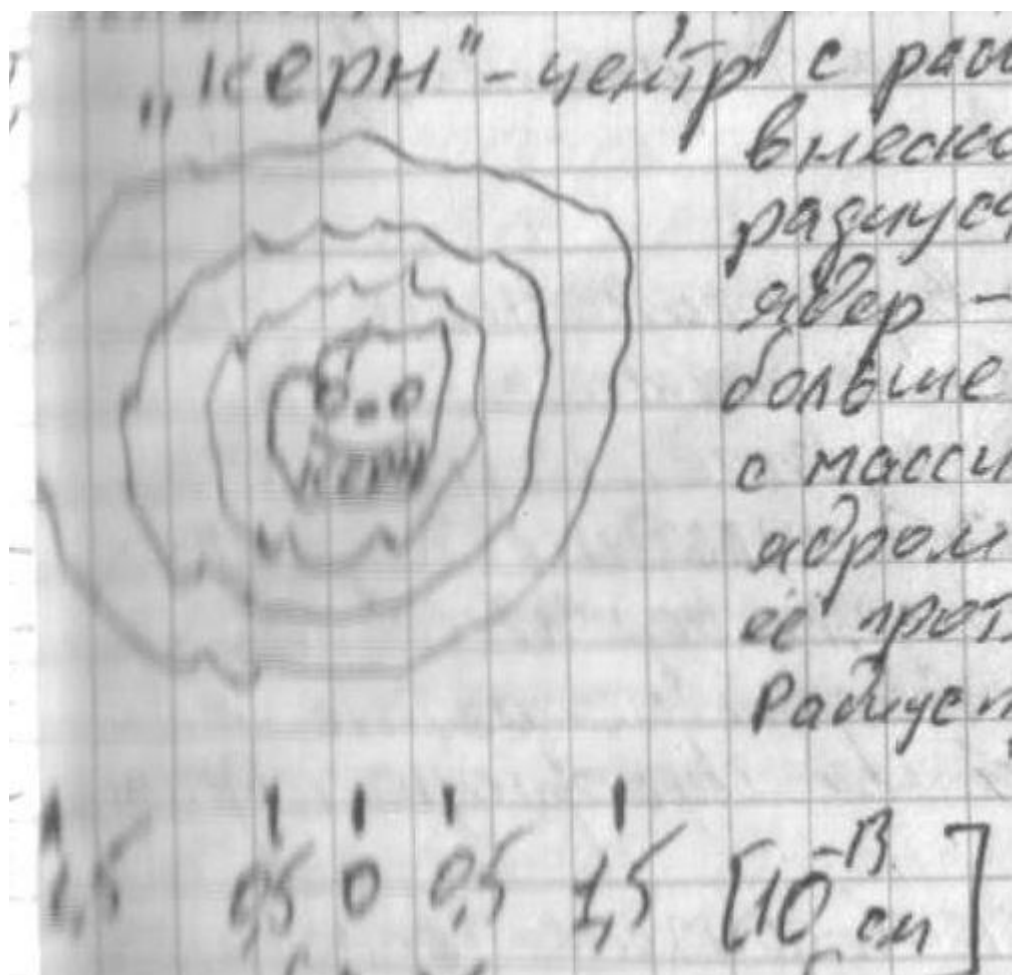 „керн" - центр с рас
внеско
радиуса
ядер -
больше
с масси
ядром
её прот
Радиус п
керн
1,5 0,5 0 0,5 1,5 [10⁻¹³ см]